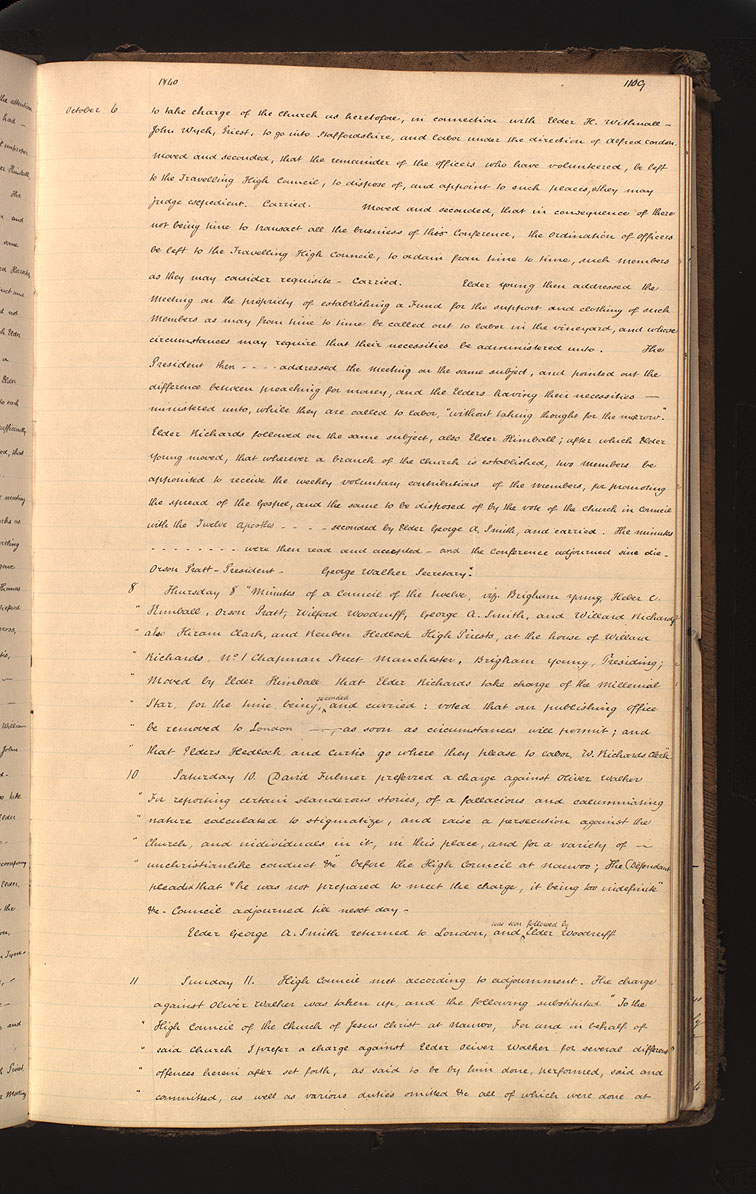 1840 1109
October 6 to take charge of the Church as heretofore, in connection with Elder H. Withnall –
John Wych, Priest, to go into Staffordshire, and labor under the direction of Alfred Cordon.
Moved and seconded, that the remainder of the officers who have volunteered, be left
to the Travelling High Council, to dispose of, and appoint to such places, as they may
judge expedient. Carried. Moved and seconded, that in consequence of there
not being time to transact all the business of this Conference, the Ordination of Officers
be left to the Travelling High Council, to ordain from time to time, such members
as they may consider requisite – Carried. Elder Young then addressed the
Meeting on the propriety of establishing a Fund for the support and clothing of such
Members as may from time to time be called out to labor in the vineyard, and whose
circumstances may require that their necessities be administered unto. The
President then - - - - addressed the meeting on the same subject, and pointed out the
difference between preaching for money, and the Elders having their necessities —
ministered unto, while they are called to labor, "without taking thought for the morrow".
Elder Richards followed on the same subject, also Elder Kimball; after which Elder
Young moved, that wherever a branch of the Church is established, two members be
appointed to receive the weekly voluntary contributions of the members, for promoting
the spread of the Gospel, and the same to be disposed of by the vote of the church in council
with the Twelve Apostles - - - - seconded by Elder George A. Smith, and carried. The minutes
- - - - - - - - were then read and accepted – and the Conference adjourned sine die –
Orson Pratt – President – George Walker Secretary".
8 Thursday 8 "Minutes of a Council of the Twelve, viz. Brigham Young, Heber C.
" Kimball, Orson Pratt, Wilford Woodruff, George A. Smith, and Willard Richards,
" also Hiram Clark, and Reuben Hedlock High Priests, at the house of Willard
" Richards, No 1 Chapman Street Manchester. Brigham Young, Presiding;
" Moved by Elder Kimball that Elder Richards take charge of the Millenial
" Star, for the time being, seconded and carried: voted that our publishing office
" be removed to London —, as soon as circumstances will permit; and
" that Elders Hedlock and Curtis go where they please to labor, W. Richards Clerk"
10 Saturday 10. David Fulmer preferred a charge against Oliver Walker
" "For reporting certain slanderous stories, of a fallacious and calumniating
" nature calculated to stigmatize, and raise a persecution against the
" Church, and individuals in it, in this place, and for a variety of —
" unchristianlike conduct &c" before the High Council at Nauvoo; The Defendant
pleaded that "he was not prepared to meet the charge, it being too indefinite"
&c – Council adjourned till next day –
Elder George A. Smith returned to London, and was soon followed by Elder Woodruff
11 Sunday 11. High Council met according to adjournment. The charge
against Oliver Walker was taken up, and the following substituted "To the
" High Council of the Church of Jesus Christ at Nauvoo, For and in behalf of
" said Church I prefer a charge against Elder Oliver Walker for several different
" offences herein after set forth, as said to be by him done, performed, said and
" committed, as well as various duties omitted &c all of which were done at